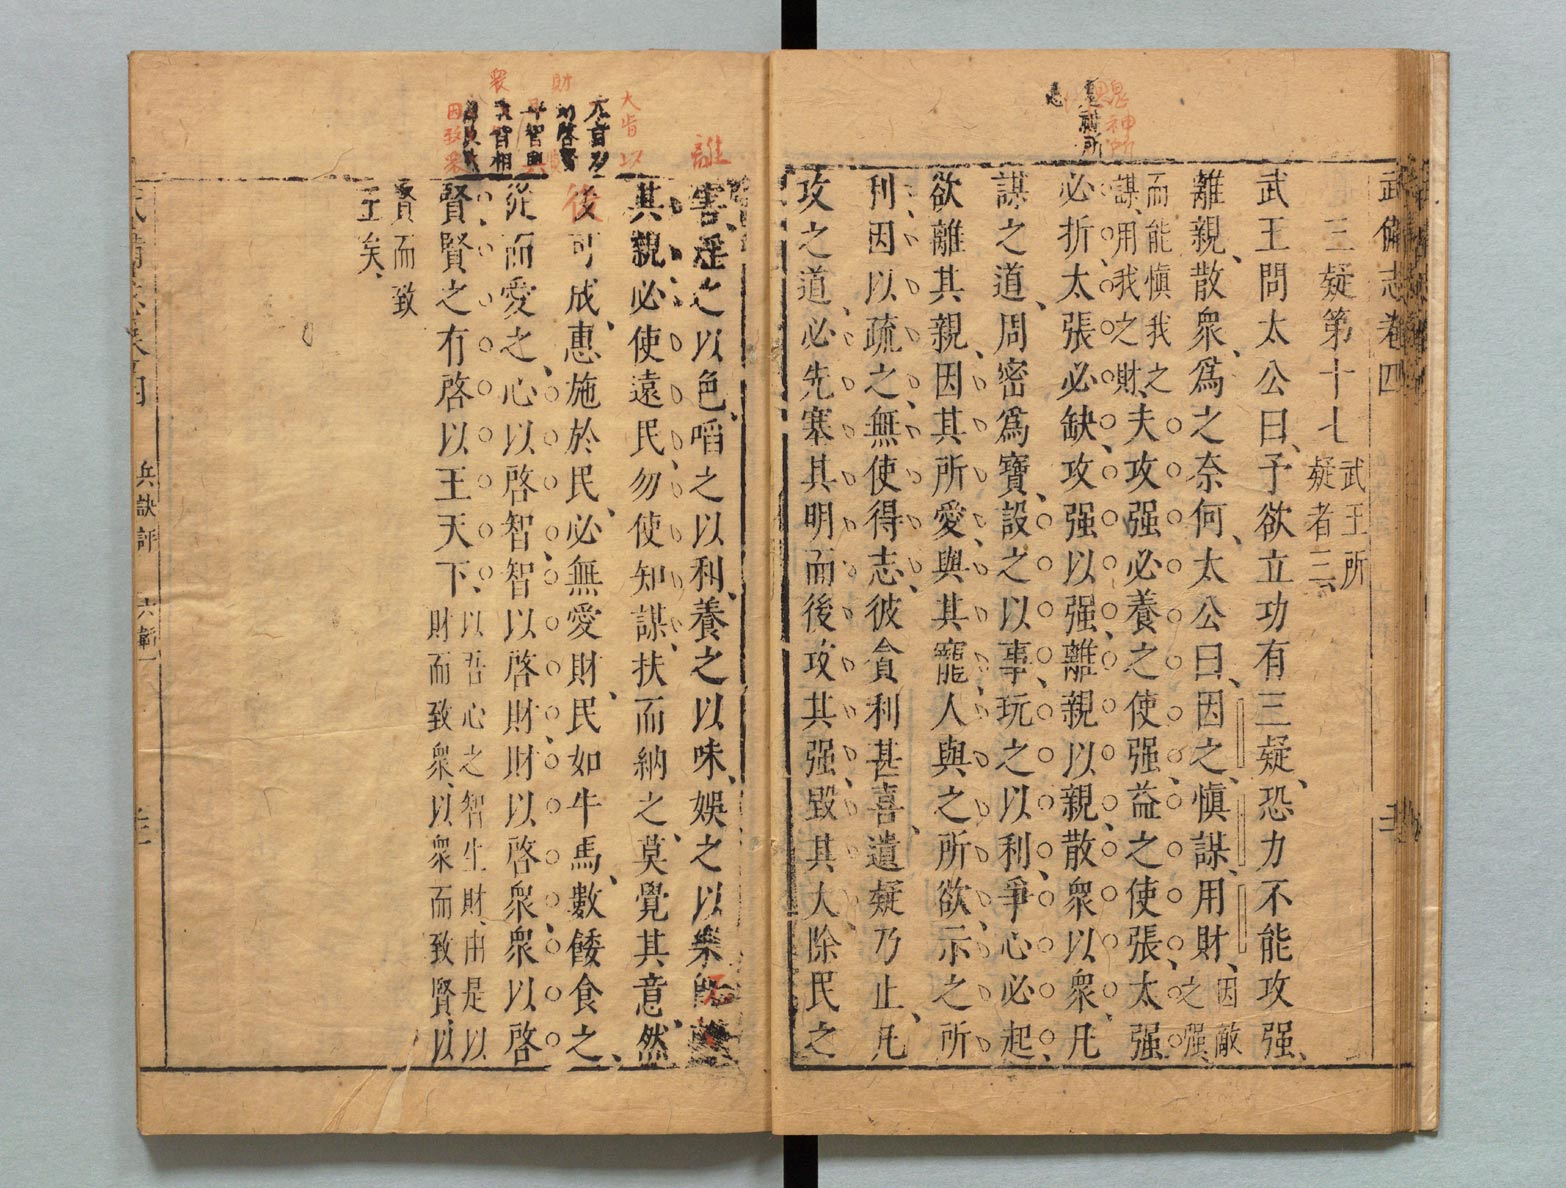 武備志卷四
三疑第十七 武王所疑者三
武王問太公曰予欲立功有三疑恐力不能攻强
離親散衆爲之奈何太公曰因之愼謀用財 因敵之强
而能愼我之謀用我之財 夫攻强必養之使强益之使張太强
必折太張必缺攻强以强離親以親散衆以衆凡
謀之道周密爲寶設之以事玩之以利爭心必起
欲離其親因其所愛與其寵人與之所欲示之所
利因以疏之無使得志彼貪利甚喜遺疑乃止凡
攻之道必先塞其明而後攻其强毀其大除民之
害淫之以色啗之以利養之以味娛之以樂既離
其親必使遠民勿使知謀扶而納之莫覺其意然
後可成惠施於民必無愛財民如牛馬數餧食之
從而愛之心以啓智智以啓財財以啓衆衆以啓
賢賢之有啓以王天下 以吾心之智生財由是以財而致衆以衆而致賢以
賢而致王矣
鬼神所
離
大肯以
財
衆
因致衆
後
兵訣評 六韜一